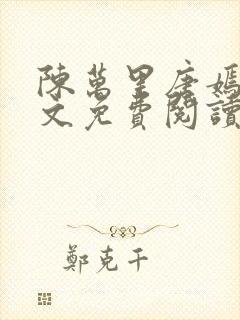 陳萬里唐嫣
文免費閱讀
鄭克干